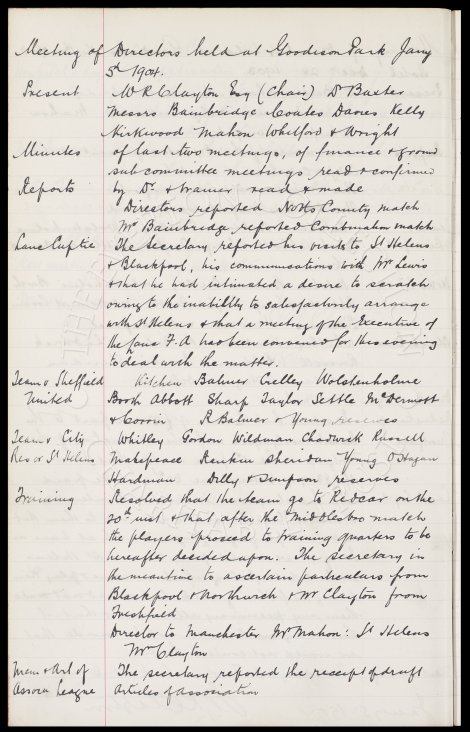 Meeting of Directors held at Goodison Park Jany
5th 1904.
Present W R Clayton Esq (Chair) Dr Baxter
Messrs Bainbridge Coates Davies Kelly
Kirkwood Mahon Whitford & Wright
Minutes of last two meetings, of finance & ground
sub committee meetings read & confirmed
Reports by Dr. & trainer read & made
Directors reported Notts County match
Mr Bainbridge reported Combination match
Lanc Cup tie The Secretary reported his visits to St Helens
& Blackpool, his communications with Mr Lewis
& that he had intimated a desire to scratch
owing to the inability to satisfactorily arrange
with St Helens & that a meeting of the Executive of
the Lanc F.A. has been convened for this evening
to deal with the matter.
Team v Sheffield Kitchen Balmer Crelley Wolstenholme
United Booth Abbott Sharp Taylor Settle McDermott
& Corrin R Balmer & Young reserves
Team v City Whitley Gordon Wildman Chadwick Russell
Res or St Helens Makepeace Rankin Sheridan Young O'Hagan
Hardman Dilly & Simpson reserves
Training Resolved that the team go to Redcar on the
20th inst & that after the Middlesbro match
the players proceed to training quarters to be
hereafter decided upon. The secretary in
the meantime to ascertain particulars from
Blackpool & Northwich & Mr Clayton from
Freshfield
Director to Manchester Mr Mahon: St Helens
Mr Clayton
Mem & Art of The secretary reported the receipt of draft
Assocn League Articles of Association